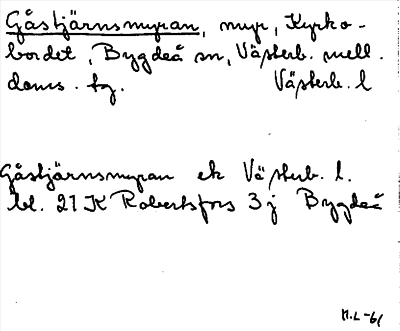 Gåstjärnsmyran, myr, Kyrko-
bordet, Bygdeå sn, Västerb. mell.
doms. tg. Västerb. l
Gåstjärnsmyran ek Västerb. l.
bl. 21 K Robertsfors 3 j Bygdeå
H.L-61